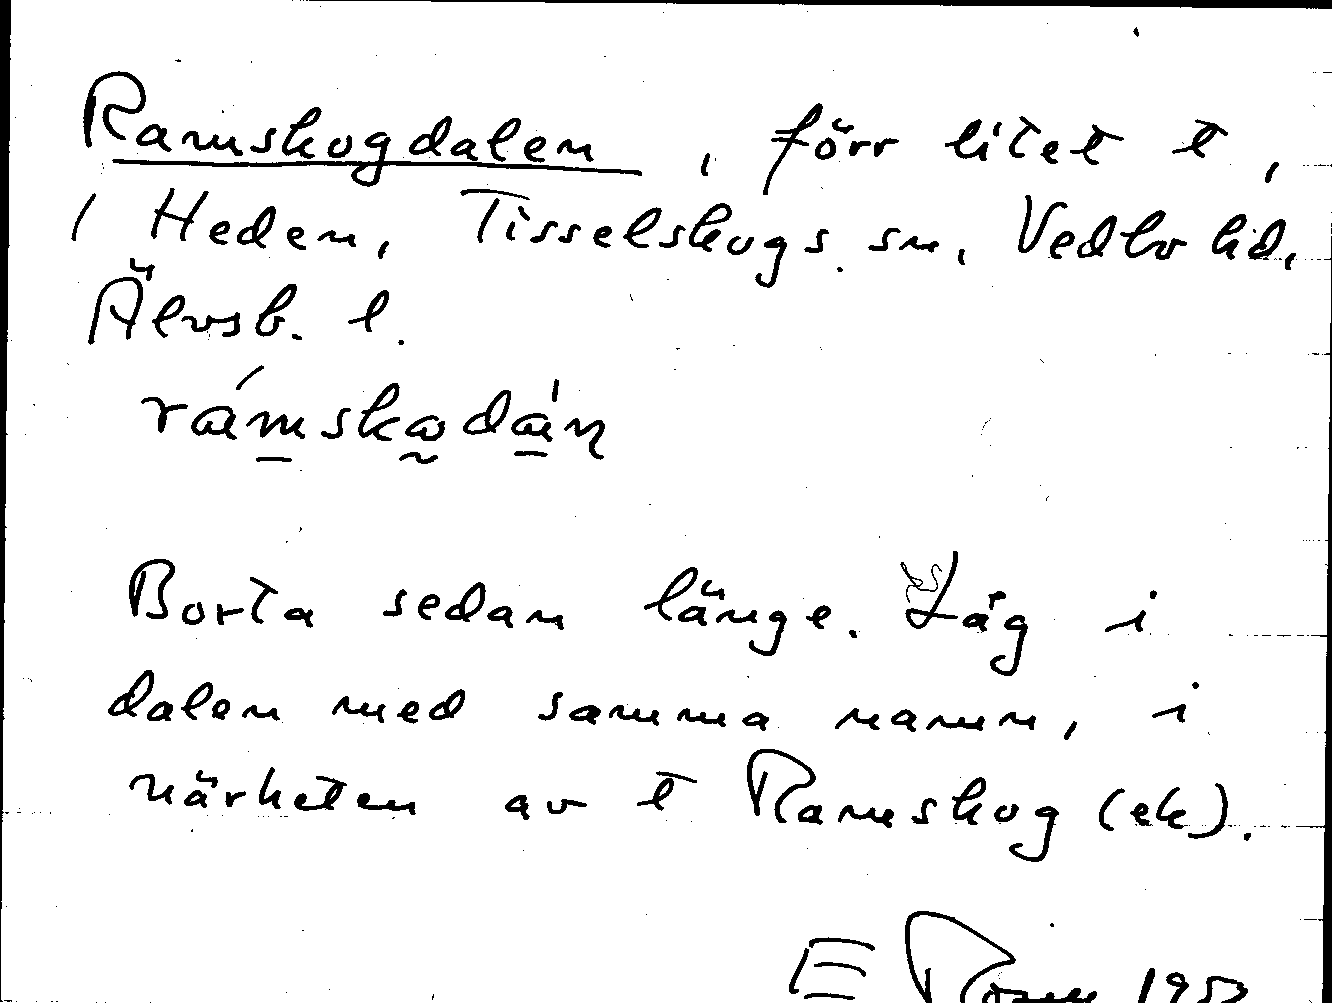 Ramskogdalen, förr litet t,
i Heden, Tisselskogs sn, Vedbo hd,
Älvsb. l.
Borta sedan länge. Låg i
dalen med samma namn, i
närheten av t Ramskog (ek).
E